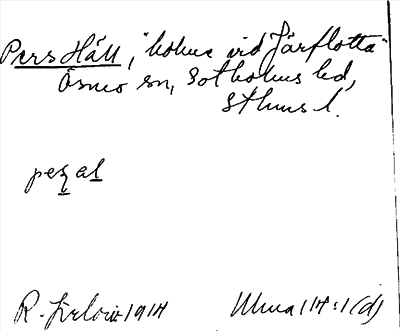 Pers Häll, "holme vid Järflotta"
Ösmo sn, Sotholms hd,
Sthms l.
peʂ al
R. Jirlow 1914
Ulma 114:1 (d)